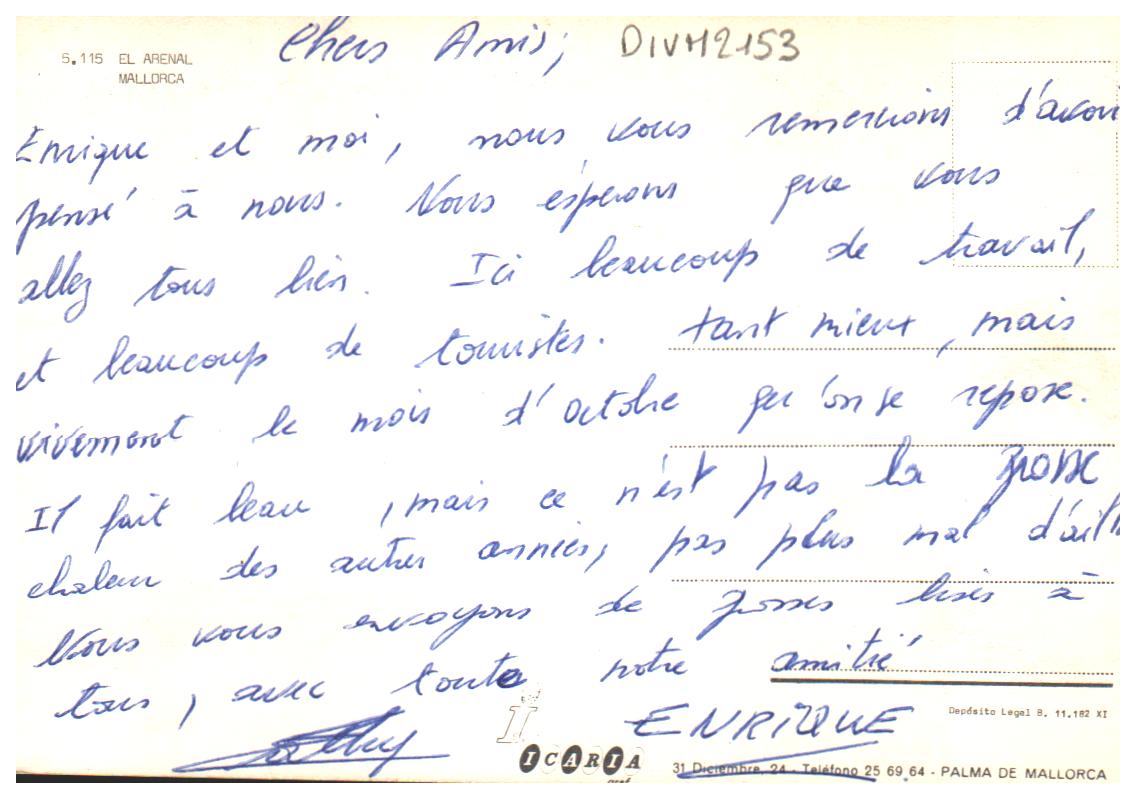 5.115 EL ARENAL
MALLORCA
Chers Amis, DIVM2153
Enrique et moi, nous vous remercions d'avoi
pensé à nous. Nous éspérons que vous
allez tous bien. Ici beaucoup de travail,
et beaucoup de touristes. tant mieux, mais
vivement le mois d'octobre qu'on se repose.
Il fait beau, mais ce n'est pas la grosse
chaleur des autres années, pas plus mal d'aill
Nous vous envoyons de grosses bises à
tous, avec toute notre amitié
ENRIQUE
Depósito Legal B. 11.182 XI
ICARIA
31 Diciembre, 24 - Teléfono 25 69 64 - PALMA DE MALLORCA